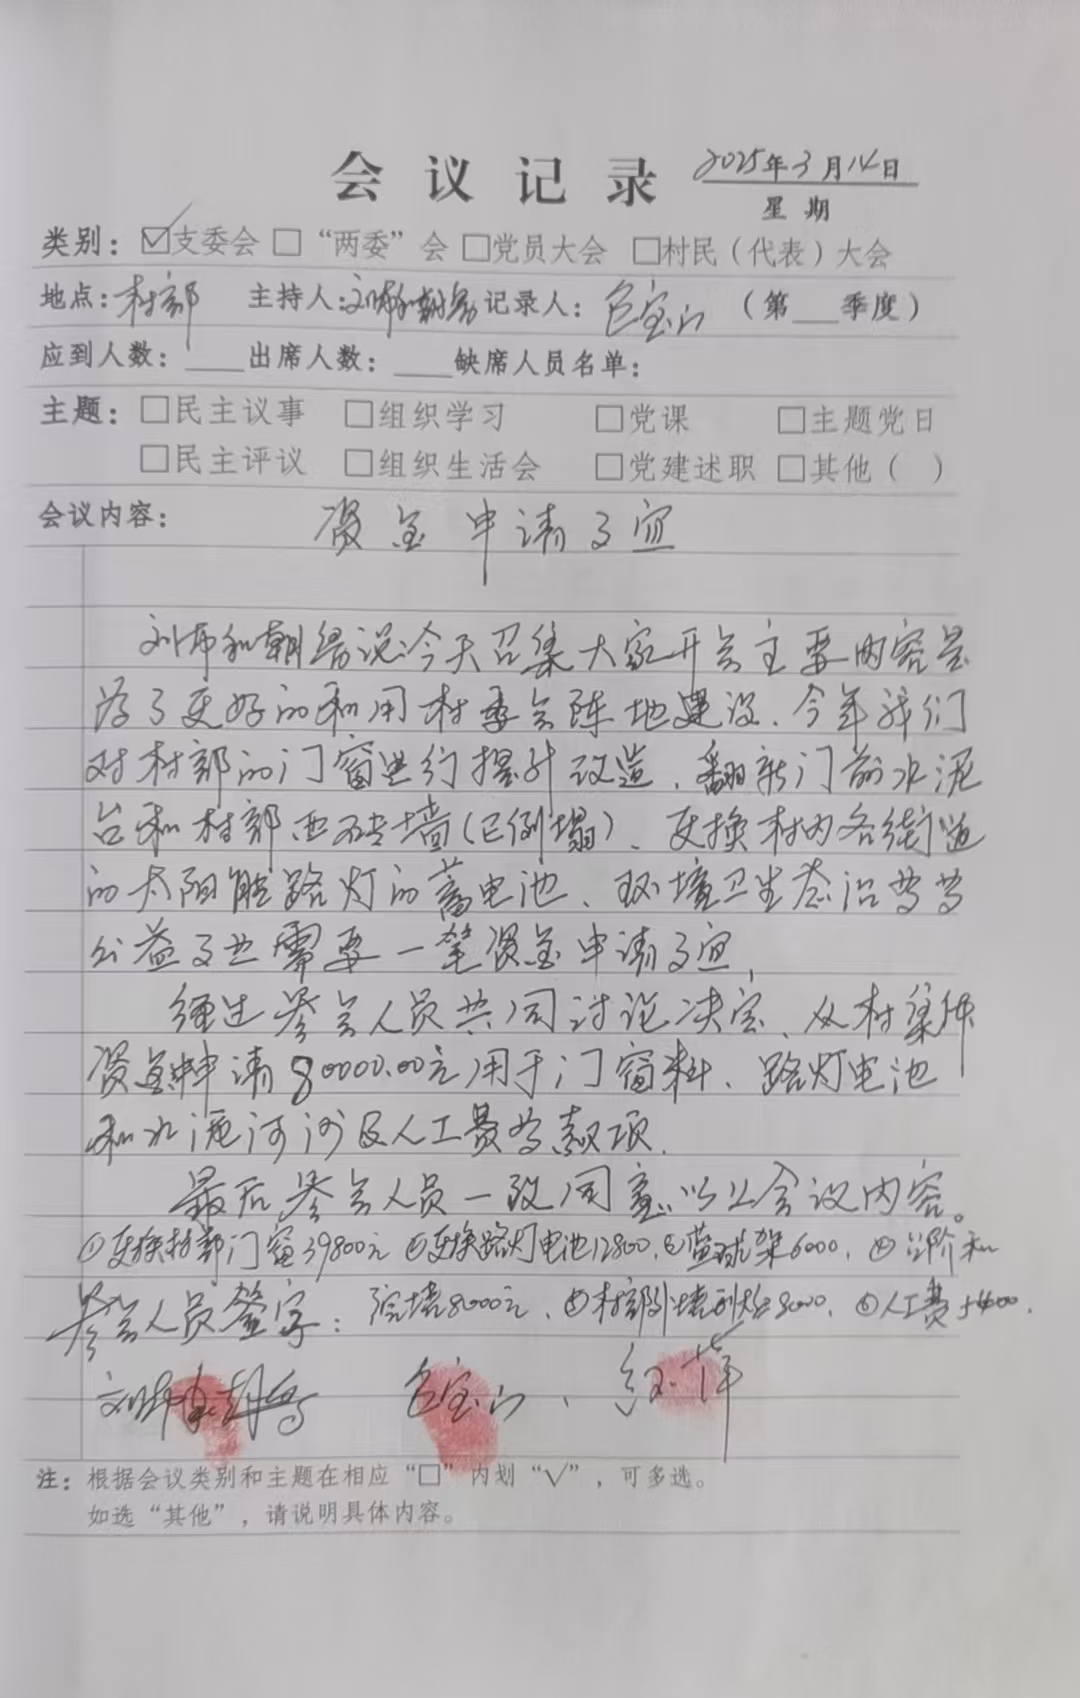 会议记录 2025年3月14日
星期
类别：☑支委会 □“两委”会 □党员大会 □村民（代表）大会
地点：村部 主持人：刘布和朝鲁 记录人：包宝山 （第___季度）
应到人数：____出席人数：____缺席人员名单：
主题：□民主议事 □组织学习 □党课 □主题党日
□民主评议 □组织生活会 □党建述职 □其他（ ）
会议内容： 资金申请事宜
刘布和朝鲁说：今天召集大家开会主要内容是
为了更好的利用村委会阵地建设、今年我们
对村部的门窗进行提升改造、翻新门前水泥
台和村部西砖墙（已倒塌）、更换村内各街道
的太阳能路灯的蓄电池、环境卫生态治等等
公益事业需要一笔资金申请事宜，
经过参会人员共同讨论决定、从村集体
资金中申请80000.00元用于门窗料、路灯电池
和水泥河沙及人工费等款项.
最后参会人员一致同意以上会议内容。
①更换村部门窗39800元 ②更换路灯电池12800，③蓝球架6000，④台阶和
参会人员签字：院墙8000元、⑤村部外墙8000、⑥人工费5400.
刘布和朝鲁 包宝山、红萍
注：根据会议类别和主题在相应“□”内划“√”，可多选。
如选“其他”，请说明具体内容。